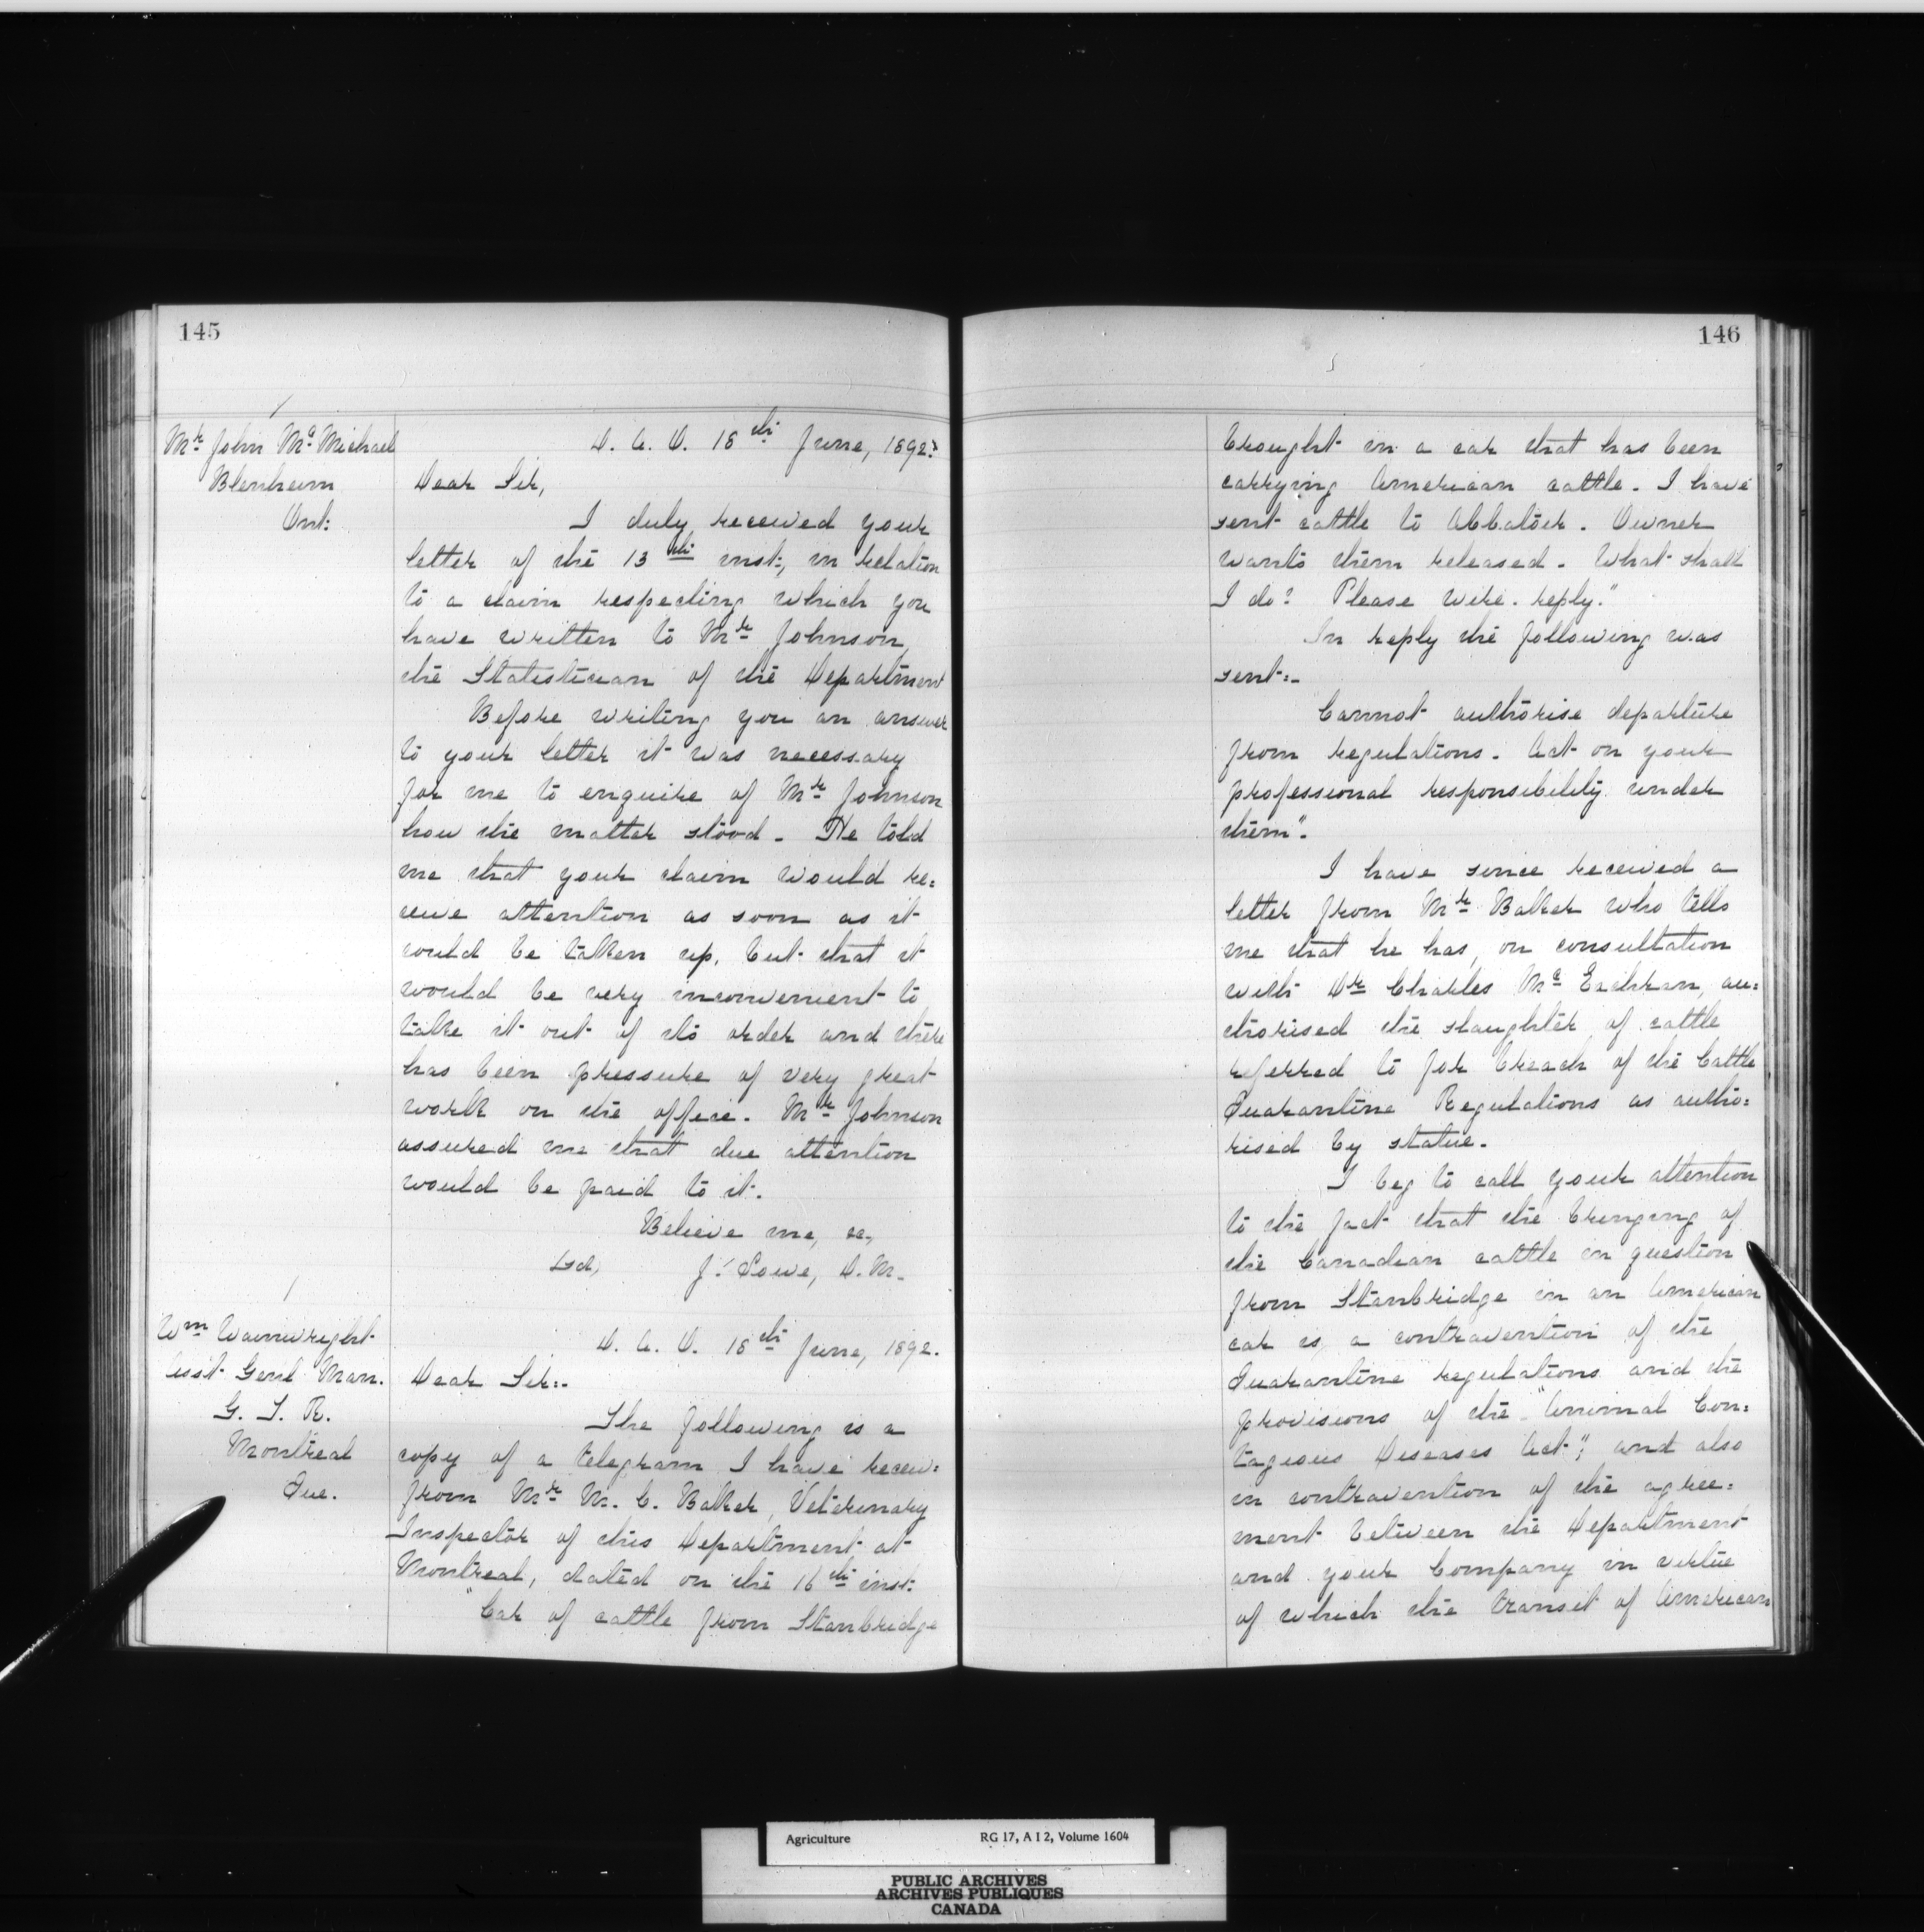 145
Mr John Mc Michael
Blenheim
Ont:
D. A. O. 18th June, 1892.
Dear Sir,
I duly received your
letter of the 13th inst:, in relation
to a claim respecting which you
have written to Mr Johnson,
the Statistician of the Department
Before writing you an answer
to your letter it was necessary
for me to enquire of Mr Johnson
how the matter stood - He told
me that your claim would re:
ceive attention as soon as it
could be taken up, but that it
would be very inconvenient to
take it out of its order and there
has been pressure of very great
work on the office. Mr Johnson
assured me that due attention
would be paid to it.
Believe me, &c,
Sgd, J. Lowe, D. M.
Wm Wainwright
Asst Genl Man.
G. T. R.
Montreal
Que.
D. A. O. 18th June, 1892.
Dear Sir:-
The following is a
copy of a telegram I have receiv:
from Mr M. C. Baker, Veterinary
Inspector of this Department at
Montreal, dated on the 16th inst:
"Car of cattle from Stanbridge
146
brought in a car that has been
carrying American cattle. I have
sent cattle to Abbatoir. Owner
wants them released. What shall
I do? Please wire. reply."
In reply the following was
sent:-
Cannot authorise departure
from regulations. Act on your
professional responsibility under
them".
I have since received a
letter from Mr Baker who tells
me that he has, on consultation
with Dr Charles Mc Eachran, au:
thorised the slaughter of cattle
referred to for breach of the Cattle
Quarantine Regulations as autho:
rised by statue.
I beg to call your attention
to the fact that the bringing of
the Canadian cattle in question
from Stanbridge in an American
car is a contravention of the
Quarantine regulations and the
provisions of the "Animal Con:
tagious Diseases Act"; and also
in contravention of the agree:
ment between the Department
and your Company in virtue
of which the transit of American
Agriculture RG 17, A I 2, Volume 1604
PUBLIC ARCHIVES
ARCHIVES PUBLIQUES
CANADA